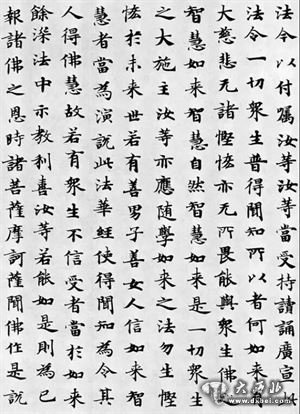 法令以付属汝等汝等當受持讀誦廣宣
法令一切眾生普得聞知所以者何如来
大慈悲无諸慳悋亦无所畏能與眾生佛
智慧如来智慧自然智慧如来是一切眾生
之大施主汝等亦應随學如来之法勿生慳
悋於未来世若有善男子善女人信如来智
慧者當為演說此法華經使得聞知為令其
人得佛慧故若有眾生不信受者當於如来
餘深法中示教利喜汝等若能如是則為已
報諸佛之恩時諸菩薩摩訶薩聞佛作是說